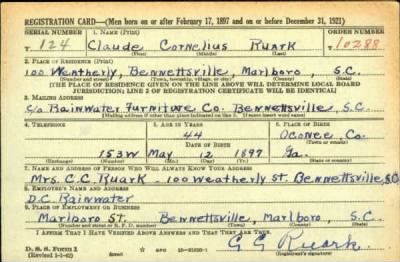 REGISTRATION CARD—(Men born on or after February 17, 1897 and on or before December 31, 1921)
SERIAL NUMBER 1. NAME (Print) ORDER NUMBER
T 124 Claude Cornelius Ruark T10288
(First) (Middle) (Last)
2. PLACE OF RESIDENCE (Print)
100 Weatherly, Bennettsville, Marlboro, S.C.
(Number and street) (Town, township, village, or city) (County) (State)
[THE PLACE OF RESIDENCE GIVEN ON THE LINE ABOVE WILL DETERMINE LOCAL BOARD
JURISDICTION; LINE 2 OF REGISTRATION CERTIFICATE WILL BE IDENTICAL]
3. MAILING ADDRESS
c/o Rainwater Furniture Co. Bennettsville, S.C.
[Mailing address if other than place indicated on line 2. If same insert word same]
4. TELEPHONE 5. AGE IN YEARS 6. PLACE OF BIRTH
44 Oconee, Co
DATE OF BIRTH (Town or county)
153W May 12 1897 Ga.
(Exchange) (Number) (Mo.) (Day) (Yr.) (State or country)
7. NAME AND ADDRESS OF PERSON WHO WILL ALWAYS KNOW YOUR ADDRESS
Mrs. C.C. Ruark - 100 Weatherly St. Bennettsville, S.C.
8. EMPLOYER'S NAME AND ADDRESS
D.C. Rainwater
9. PLACE OF EMPLOYMENT OR BUSINESS
Marlboro St. Bennettsville, Marlboro, S.C.
(Number and street or R. F. D. number) (Town) (County) (State)
I AFFIRM THAT I HAVE VERIFIED ABOVE ANSWERS AND THAT THEY ARE TRUE.
D. S. S. Form 1 GPO C C Ruark
(Registrant's signature)